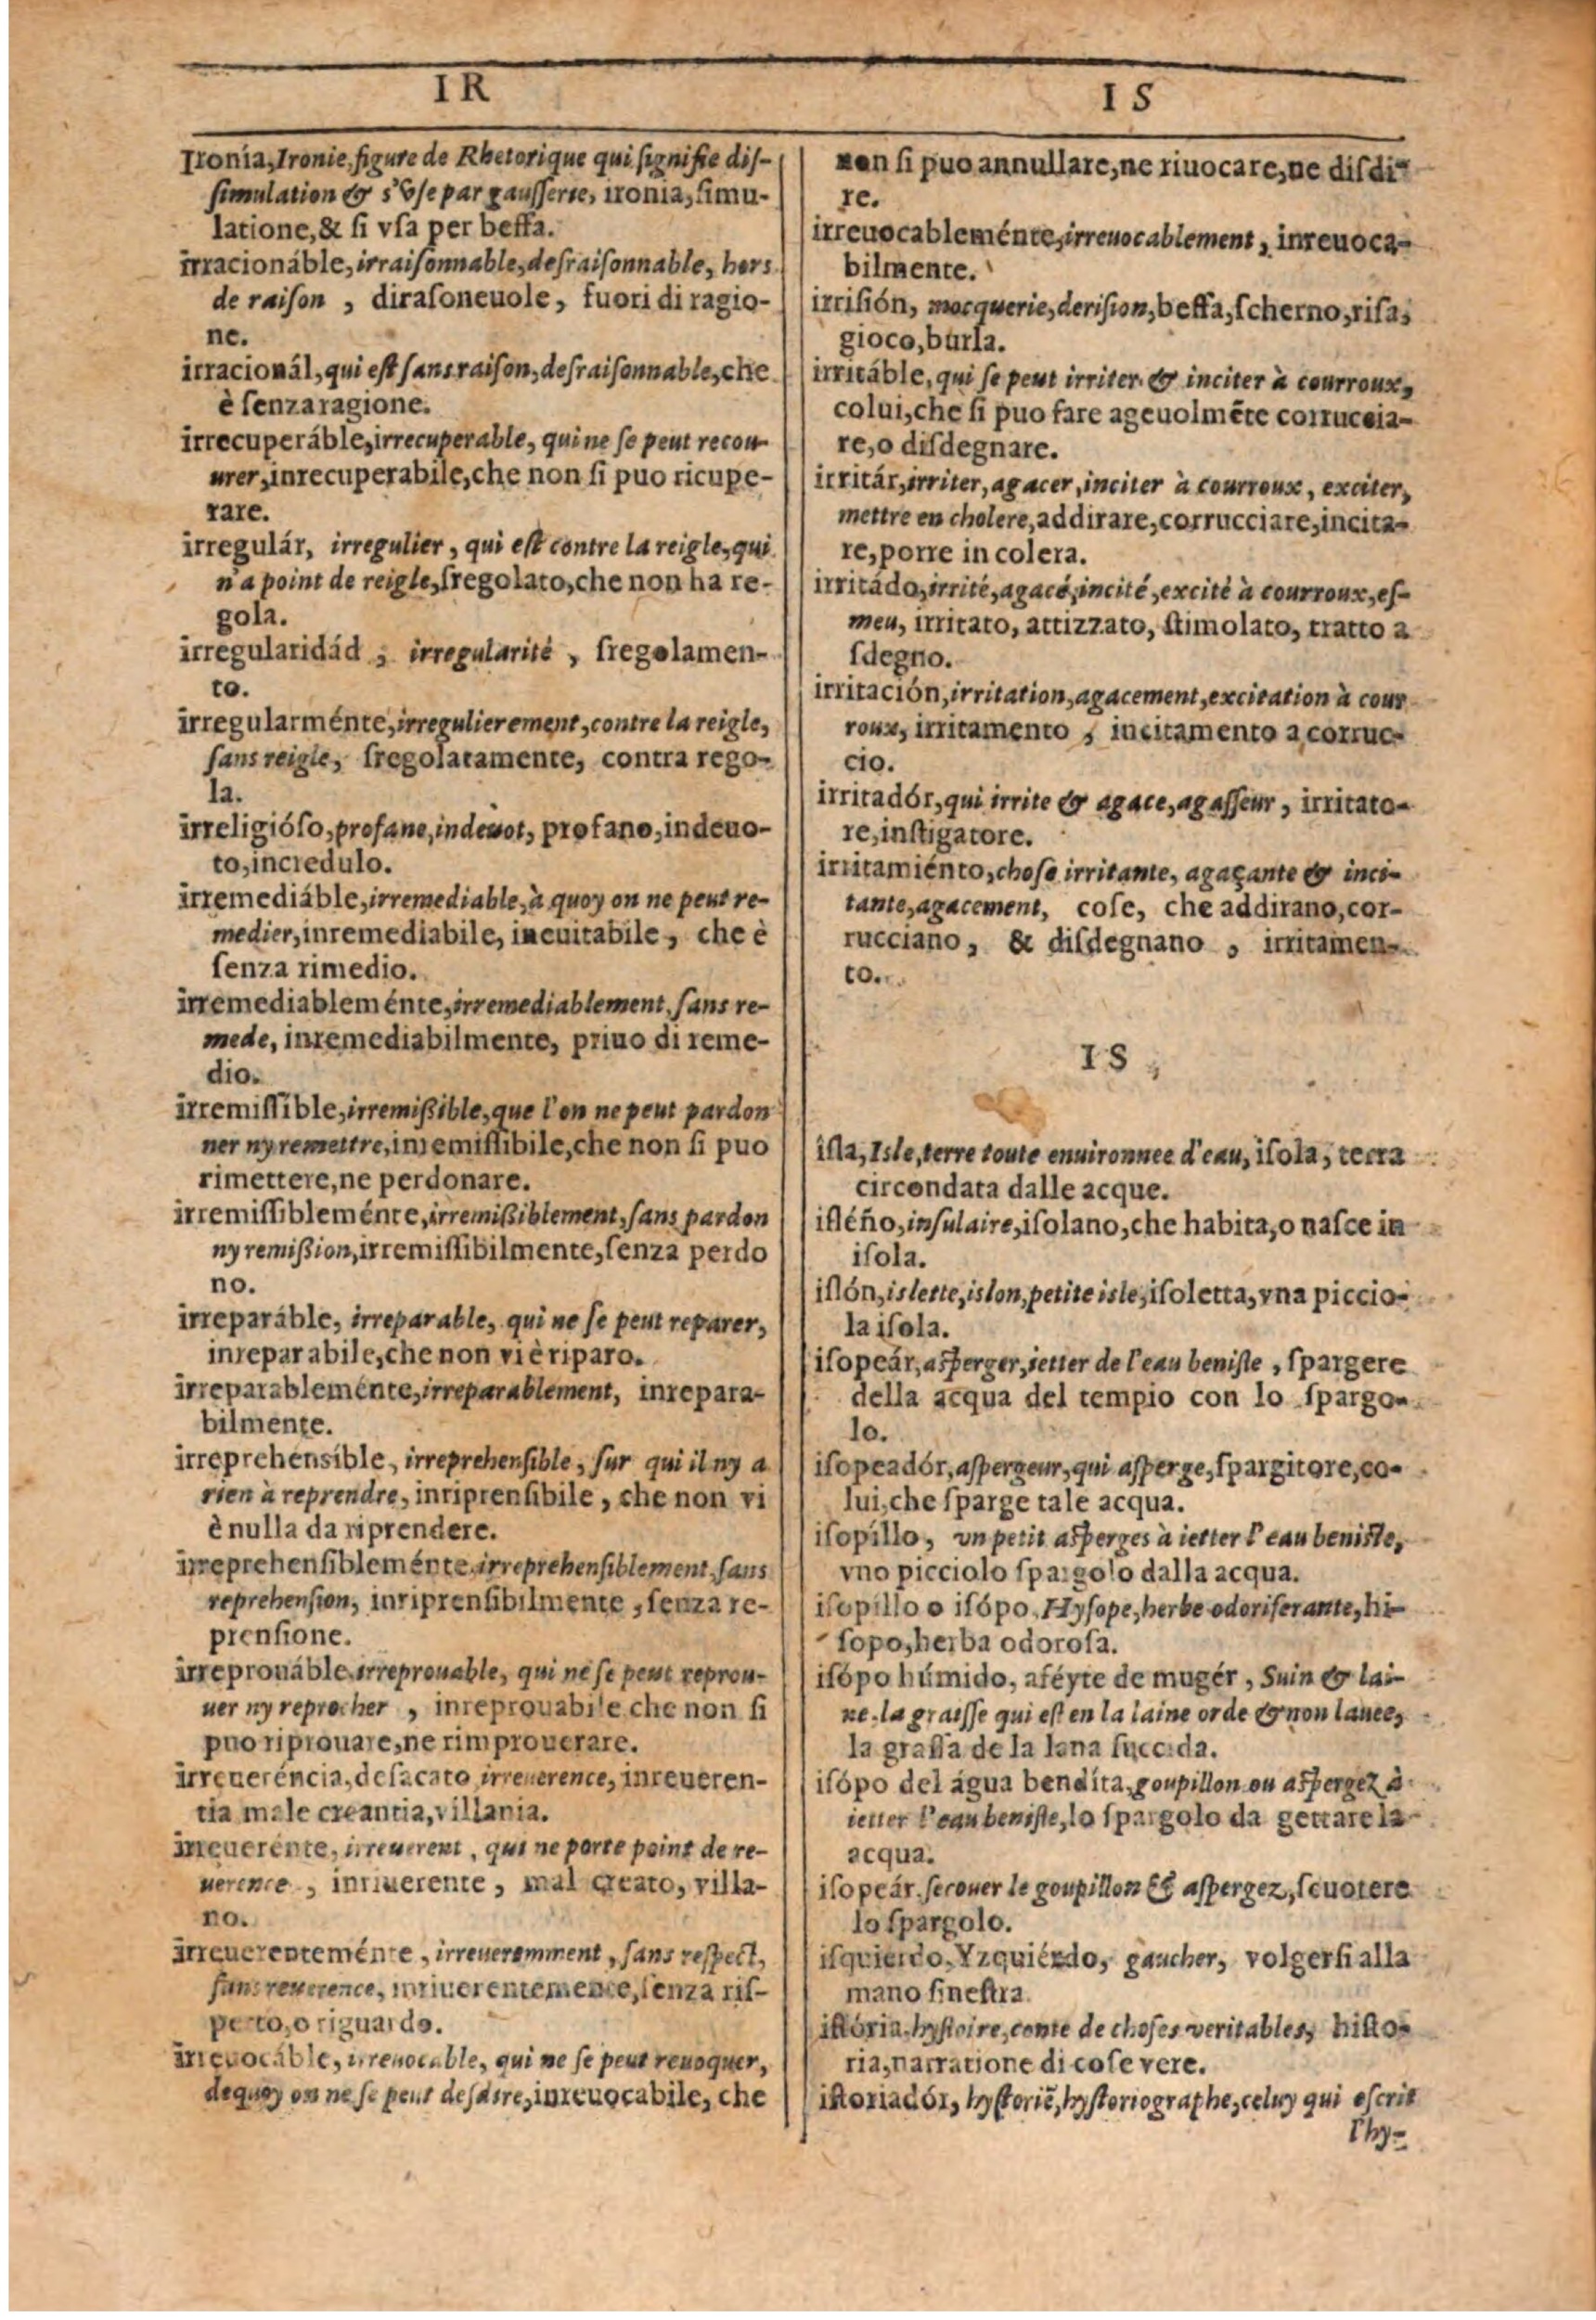 IR
Ironía, Ironie, figure de Rhetorique qui signifie dis-
simulation & s'vse par gausserie, ironia, simu-
latione, & si vsa per beffa.
irracionáble, irraisonnable, desraisonnable, hors
de raison, dirasoneuole, fuori di ragio-
ne.
irracionál, qui est sans raison, desraisonnable, che
è senza ragione.
irrecuperáble, irrecuperable, qui ne se peut recou-
urer, inrecuperabile, che non si puo ricupe-
rare.
irregulár, irregulier, qui est contre la reigle, qui
n'a point de reigle, sregolato, che non ha re-
gola.
irregularidád, irregularité, sregolamen-
to.
irregularménte, irregulierement, contre la reigle,
sans reigle, sregolatamente, contra rego-
la.
irreligióso, profane, indeuot, profano, indeuo-
to, incredulo.
irremediáble, irremediable, à quoy on ne peut re-
medier, inremediabile, ineuitabile, che è
senza rimedio.
irremediableménte, irremediablement, sans re-
mede, inremediabilmente, priuo di reme-
dio.
irremissíble, irremißible, que l'on ne peut pardon
ner ny remettre, inremissibile, che non si puo
rimettere, ne perdonare.
irremissibleménte, irremißiblement, sans pardon
ny remißion, irremissibilmente, senza perdo
no.
irreparáble, irreparable, qui ne se peut reparer,
inreparabile, che non vi è riparo.
irreparableménte, irreparablement, inrepara-
bilmente.
irreprehensíble, irreprehensible, sur qui il ny a
rien à reprendre, inriprensibile, che non vi
è nulla da riprendere.
irreprehensibleménte, irreprehensiblement, sans
reprehension, inriprensibilmente, senza re-
prensione.
irreprouáble, irreprouable, qui ne se peut reprou-
uer ny reprocher, inreprouabile che non si
puo riprouare, ne rimprouerare.
irreueréncia, desacato, irreuerence, inreueren-
tia male creantia, villania.
irreuerénte, irreuerent, qui ne porte point de re-
uerence, inriuerente, mal creato, villa-
no.
irreuerenteménte, irreueremment, sans respect,
sans reuerence, inriuerentemente, senza ris-
petto, o riguardo.
irreuocáble, irreuocable, qui ne se peut reuoquer,
dequoy on ne se peut desdire, inreuocabile, che
IS
non si puo annullare, ne riuocare, ne disdi-
re.
irreuocableménte, irreuocablement, inreuoca-
bilmente.
irrisión, mocquerie, derision, beffa, scherno, risa,
gioco, burla.
irritáble, qui se peut irriter & inciter à courroux,
colui, che si puo fare ageuolmẽte corruccia-
re, o disdegnare.
irritár, irriter, agacer, inciter à courroux, exciter,
mettre en cholere, addirare, corrucciare, incita-
re, porre in colera.
irritádo, irrité, agacé, incité, excité à courroux, es-
meu, irritato, attizzato, stimolato, tratto a
sdegno.
irritación, irritation, agacement, excitation à cour
roux, irritamento, incitamento a corruc-
cio.
irritadór, qui irrite & agace, agasseur, irritato-
re, instigatore.
irritamiénto, chose irritante, agaçante & inci-
tante, agacement, cose, che addirano, cor-
rucciano, & disdegnano, irritamen-
to.
IS
ísla, Isle, terre toute enuironnee d'eau, isola, terra
circondata dalle acque.
isléño, insulaire, isolano, che habita, o nasce in
isola.
islón, islette, islon, petite isle, isoletta, vna piccio-
la isola.
isopeár, asperger, ietter de l'eau beniste, spargere
della acqua del tempio con lo spargo-
lo.
isopeadór, aspergeur, qui asperge, spargitore, co-
lui, che sparge tale acqua.
isopíllo, vn petit asperges à ietter l'eau beniste,
vno picciolo spargolo dalla acqua.
isopíllo o isópo, Hysope, herbe odoriferante, hi-
sopo, herba odorosa.
isópo húmido, aféyte de mugér, Suin & lai-
ne, la graisse qui est en la laine orde & non lauee,
la grassa de la lana succida.
isópo del água bendíta, goupillon ou aspergez à
ietter l'eau beniste, lo spargolo da gettare la
acqua.
isopeár, secouer le goupillon & aspergez, scuotere
lo spargolo.
isquierdo, Yzquiérdo, gaucher, volgersi alla
mano sinestra.
istória, hystoire, conte de choses veritables, histo-
ria, narratione di cose vere.
istoriadór, hystoriẽ, hystoriographe, celuy qui escrit
l'hy-